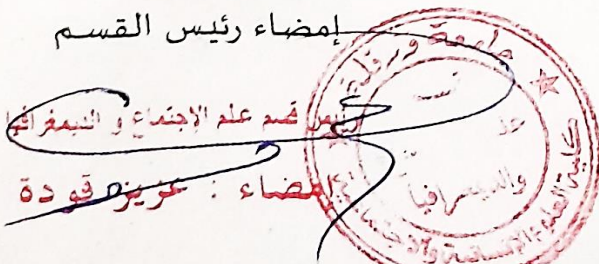 إمضاء رئيس القسم
رئيس قسم علم الاجتماع و الديمغرافيا
إمضاء : عزيز قودة
جامعة ورقلة
كلية العلوم الإنسانية والاجتماعية
قسم
علم
والديمغرافيا